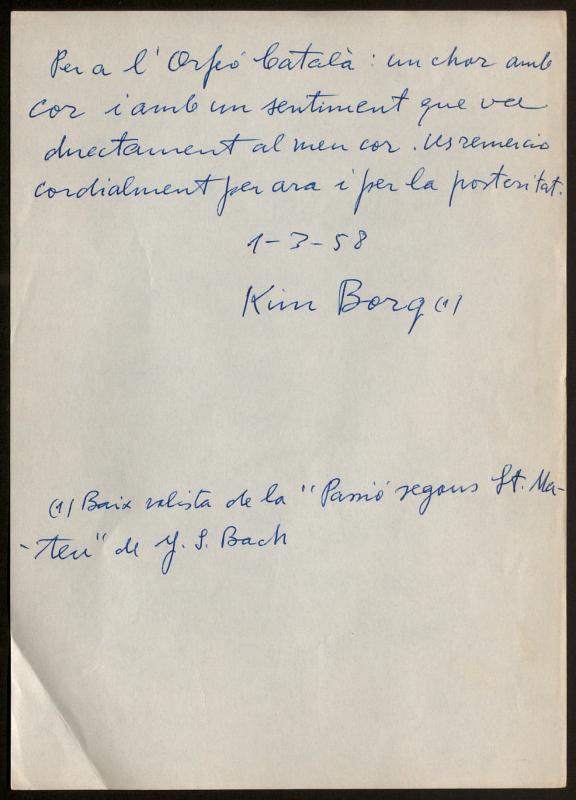 Per a l'Orfeó Català: un chor amb
cor i amb un sentiment que va
directament al meu cor. Us remercio
cordialment per ara i per la posteritat.
1-3-58
Kim Borg (1)
(1) Baix solista de la "Passió segons St. Ma-
-teu" de J. S. Bach